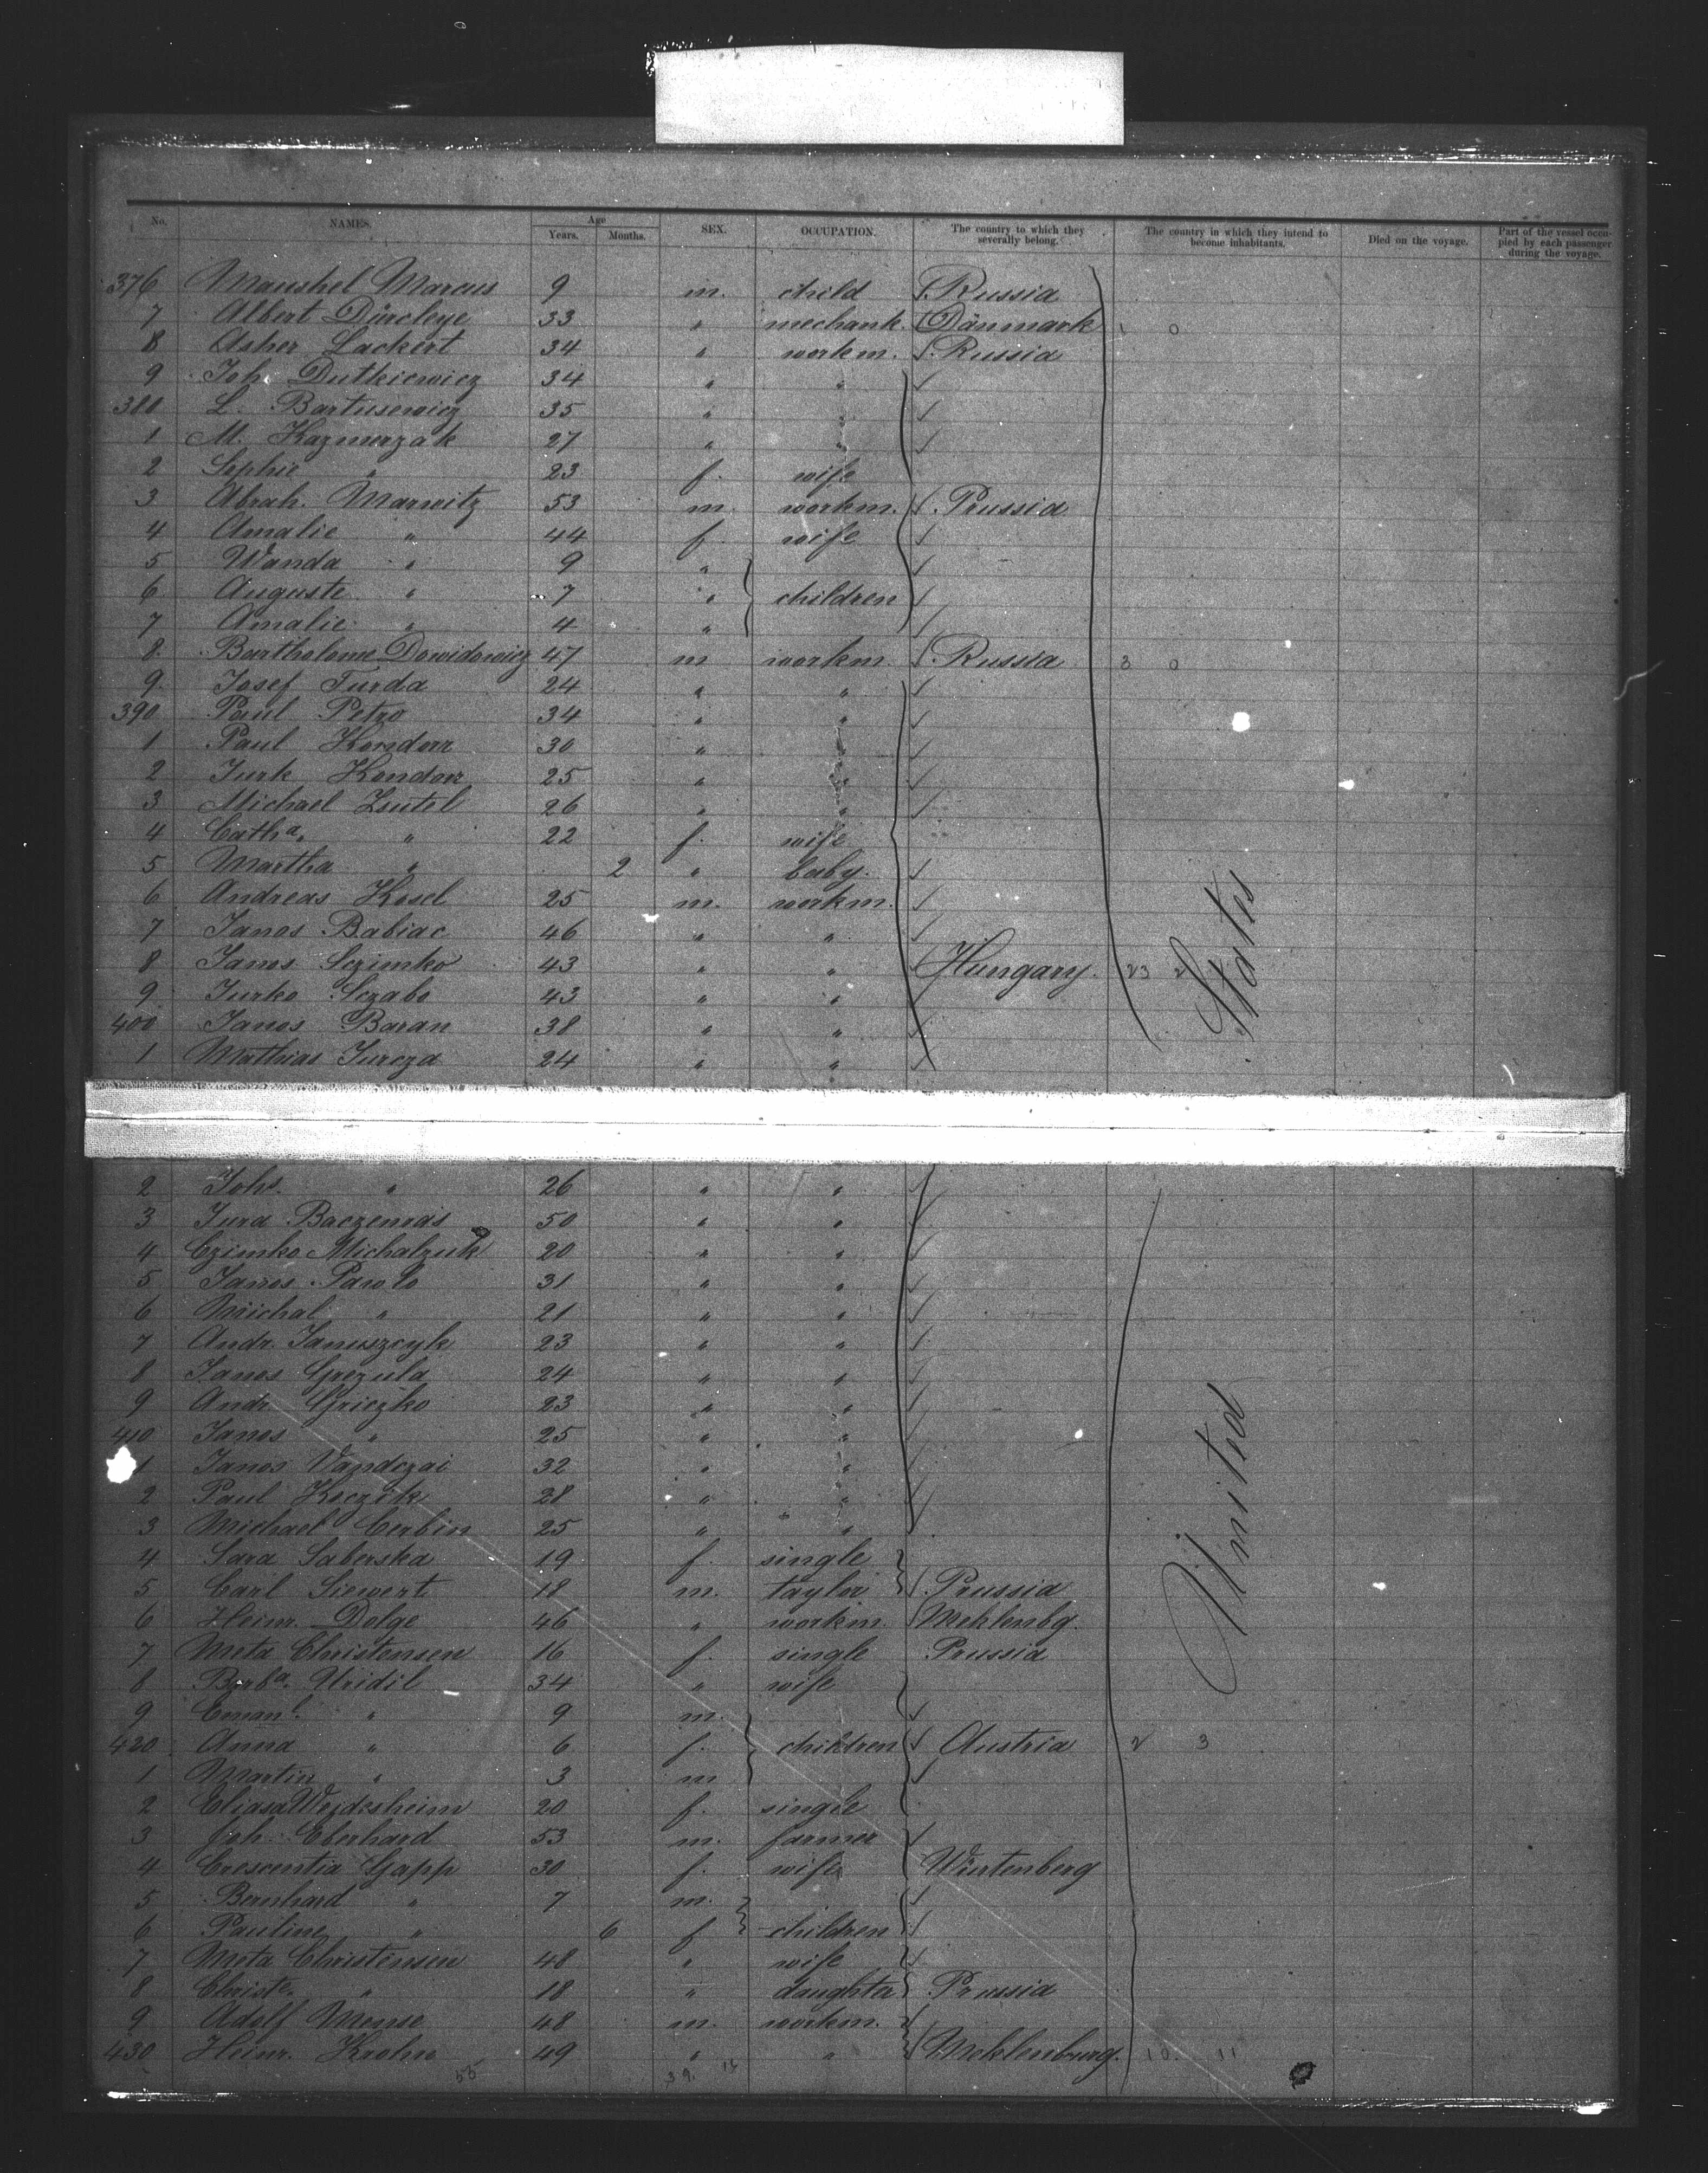 No. NAMES. Age Years. Months. SEX. OCCUPATION. The country to which they severally belong. The country in which they intend to become inhabitants. Died on the voyage. Part of the vessel occupied by each passenger during the voyage.
376 Manshel Marcus 9 m. child Russia
7 Albert Dürcleye 33 " mechank. Dänmark 1 0
8 Asher Lackert 34 " workm. Russia
9 Joh. Dutkiewicz 34 " "
380 L. Bartusewicz 35 " "
1 M. Kazmerzak 27 " "
2 Sophie " 23 f. wife
3 Abrah. Marwitz 53 m. workm. Prussia
4 Amalie " 44 f. wife
5 Wanda " 9 "
6 Auguste " 7 " children
7 Amalie " 4 "
8 Bartholome Dowidowicz 47 m workm. Russia 3 0
9 Josef Turda 24 " "
390 Paul Petro 34 " "
1 Paul Kondorr 30 " "
2 Jurk Kondorr 25 " "
3 Michael Zsutel 26 " "
4 Catha. " 22 f. wife
5 Martha " 2 " baby.
6 Andreas Kosel 25 m. workm.
7 Janos Babiac 46 " "
8 Janos Sczimko 43 " " Hungary. 23 2
9 Jurko Sczabo 43 " "
400 Janos Baran 38 " "
1 Mathias Jurcza 24 " "
2 Johs. " 26 " "
3 Jura Baczenras 50 " "
4 Czimko Michalzuk 20 " "
5 Janos Parolo 31 " "
6 Michal " 21 " "
7 Andr. Januszcyk 23 " "
8 Janos Grezula 24 " "
9 Andr. Griczko 23 " "
410 Janos " 25 " "
1 Janos Vandczai 32 " "
2 Paul Koczik 28 " "
3 Michael Cerbin 25 " "
4 Sara Saberska 19 f. single
5 Carl Siewert 18 m. taylor Prussia
6 Heinr. Dolge 46 " workm. Meklenbg.
7 Meta Christensen 16 f. single Prussia
8 Barba. Uridil 34 " wife
9 Emanl. " 9 m.
420 Anna " 6 f. children Austria 2 3
1 Martin " 3 m
2 Eliasa Weydesheim 20 f. single
3 Joh. Eberhard 53 m. farmer
4 Crescentia Gapp 30 f. wife Würtenberg
5 Bernhard " 7 m.
6 Pauline " 6 f children
7 Meta Christensen 48 " wife
8 Christe. " 18 " daughter Prussia
9 Adolf Mense 48 m. workm.
430 Heinr. Krohn 49 " " Meklenburg. 10. 11
55 39. 16
United States